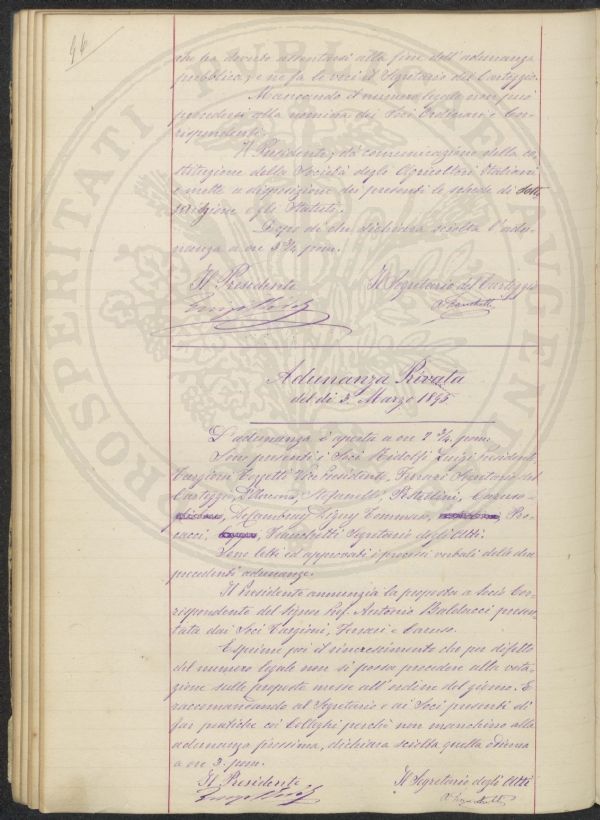 46
che ha dovuto assentarsi alla fine dell'adunanza
pubblica, e ne fa le veci il Segretario del Carteggio.
Mancando il numero legale non può
procedersi alla nomina dei Soci Ordinari e Cor-
rispondenti.
Il Presidente, dà comunicazione della co-
stituzione della Società degli Agricoltori Italiani
e mette a disposizione dei presenti le schede di sotto-
scrizione e gli Statuti.
Dopo di che dichiara sciolta l'adu-
nanza a ore 3 3/4 pom.
Il Presidente Il Segretario del Carteggio
Adunanza Privata
del dì 3 Marzo 1895
L'adunanza è aperta a ore 2 3/4 pom.
Sono presenti i Soci Ridolfi Luigi presidente
Targioni Tozzetti Vice Presidente, Ferrari Segretario del
Carteggio, Stefanelli, Pestellini, Caruso
De Cambray Digny Tommaso,
Franchetti Segretario degli Atti.
Sono letti ed approvati i processi verbali delle due
precedenti adunanze.
Il Presidente annunzia la proposta a Socio Cor-
rispondente del Signor Prof. Antonio Baldacci presen-
tata dai Soci Targioni, Ferrari e Caruso.
Esprime poi il rincrescimento che per difetto
del numero legale non si possa procedere alla vota-
zione sulle proposte messe all'ordine del giorno. E
raccomandando al Segretario e ai Soci presenti di
far pratiche coi Colleghi perchè non manchino alla
adunanza prossima, dichiara sciolta quella odierna
a ore 3. pom.
Il Presidente Il Segretario degli Atti
PROSPERITATI PUBLICAE AUGENDAE